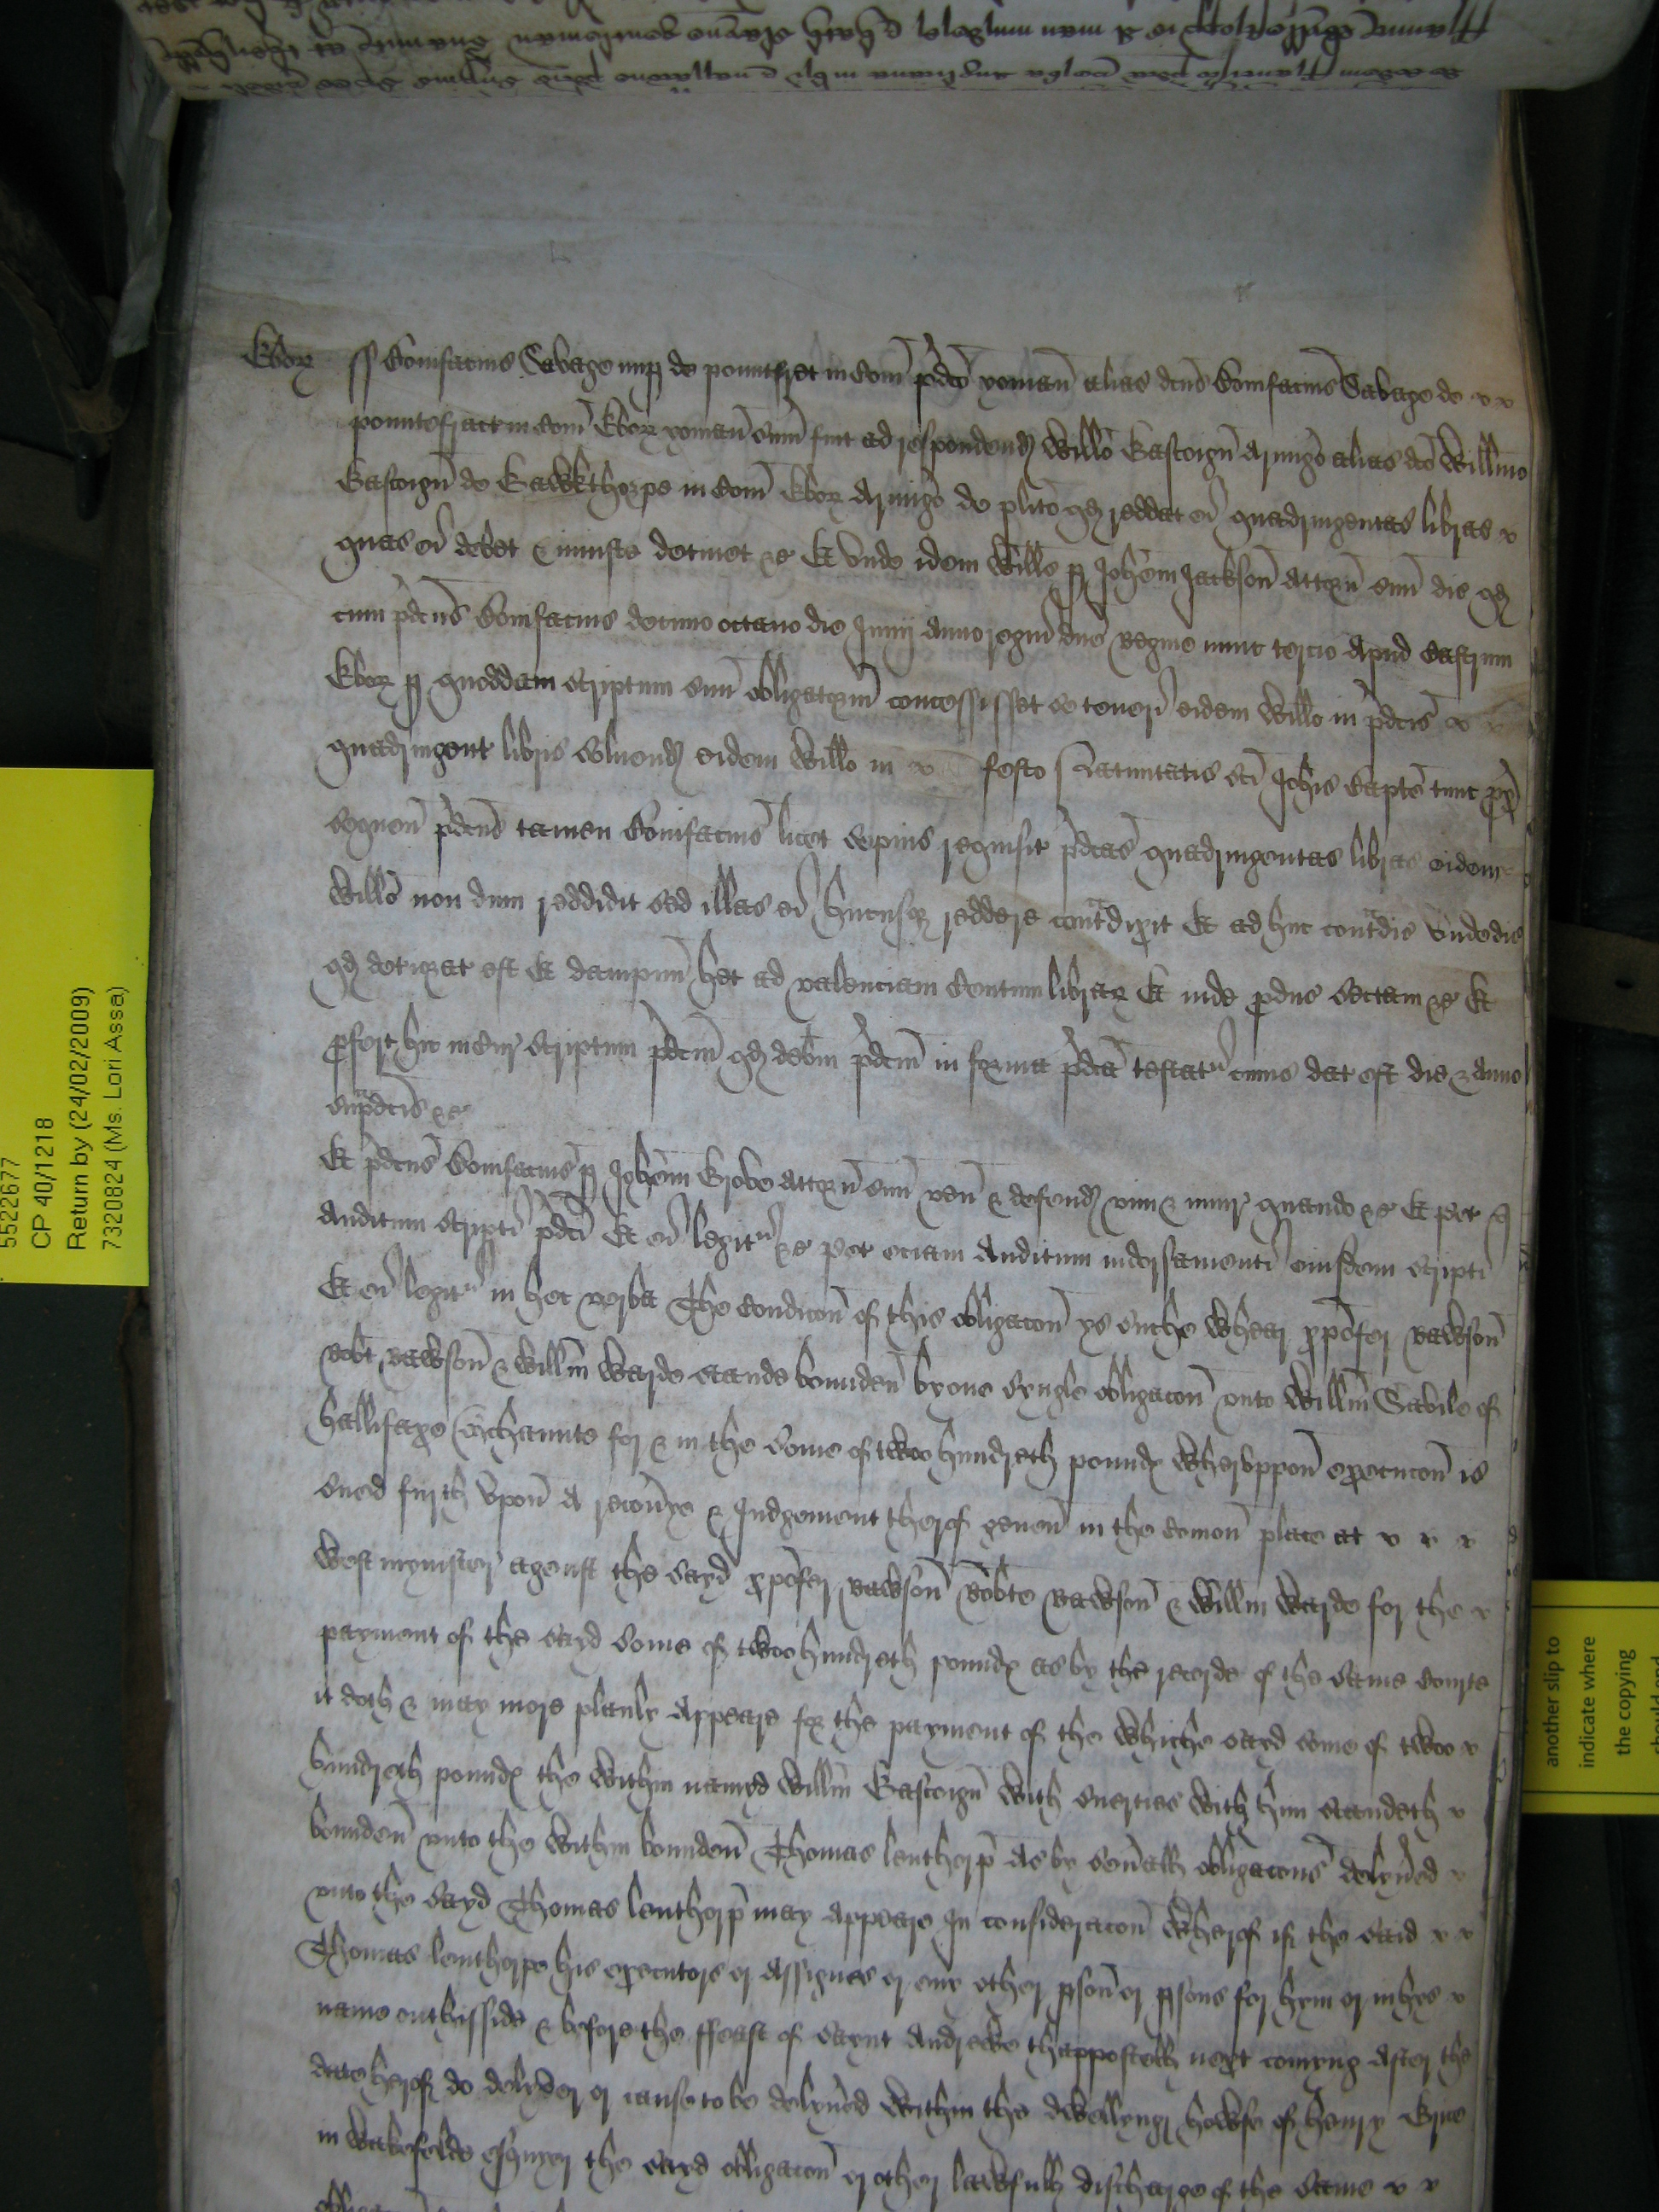 Ebor ss Bonifacius Savage nup de pountfret in Com pdco yoman alias dcus Bonifacius Savage de
pountefract in Com Ebor yoman sum fuit ad respondend Willo Gascoign Armigo alias dco Willmo
Gascoign de Gawkthorpe in Com Ebor Armigo de plito qd reddat ei quadringentas libras
quas ei debet & iniuste detinet &c Et unde idem Wills p Johem Jackson Attorn suum dic qd
cum pdcus Bonifacius decimo octavo die Junij anno regni dne Regine nunc tercio Apud Castrum
Ebor p quoddam scriptum suum obligatorium concessisset se teneri eidem Willo in pdcis
quadringent libris solvend eidem Willo in festo Nativitatis sci Johis Bapte tunc prox
sequen pdcus tamen Bonifacius licet sepius requisit pdcas quadringentas libras eidem
Willo non dum reddidit sed illas ei hucusq reddere contradixit Et ad huc contradic unde dic
qd deteriorat est Et dampnum het ad valenciam Centum librar Et inde pducit sectam &c Et
pfert hic in Cur scriptum pdcm qd debm pdcm in forma pdca testatur cuius dat est die & anno
supdcis &c
Et pdcus Bonifacius p Johem Grove Attorn suum ven & defend vim & iniur quando &c Et pet
Auditum scripti pdci Et ei legitur &c pet eciam Auditum indorsamenti eiusdem scripti
Et ei legitur in hec verba The Condicon of this obligacon ys suche Whear xpofer Rawson
Robt Rawson & Willm Warde stande bounden by one syngle obligacon unto Willm Savile of
hallifaxe for & in the some of twoo hundreth pounds Wheruppon execucon is
sued furth Upon A recovye & Judgement therof geven in the Comon place at
Westmynster agenst the sayd xpofer Rawson Robte Rawson & Willm Warde for the
payment of the sayd some of twoo hundreth pounds as by the recorde of the same Courte
it doth & may more planly Appeare for the payment of the Whiche sayd some of twoo
hundreth pounds the Within named Willm Gascoign With suerties With him standeth
bounden unto the Within bounden Thomas leuthorp As by sevall obligacons delyved
unto the sayd Thomas leuthorp may Appeare In consideracon Wherof if the said
Thomas leuthorpe his executors or Assignes or eny other pson or psons for hym or in hys
name onthisside & before the ffeast of saynt Andrewe thappostell next comyng After the
date herof do delyver or cause to be delyved Within the dwellyng howse of henry Grice
in Wakefelde esquyer the sayd obligacon or other lawfull discharge of the same
5522677
CP 40/1218
Return by (24/02/2009)
7320824 (Ms. Lori Assa)
another slip to
indicate where
the copying
should end